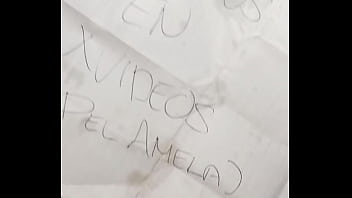 EN
XVIDEOS
PELAMELA)